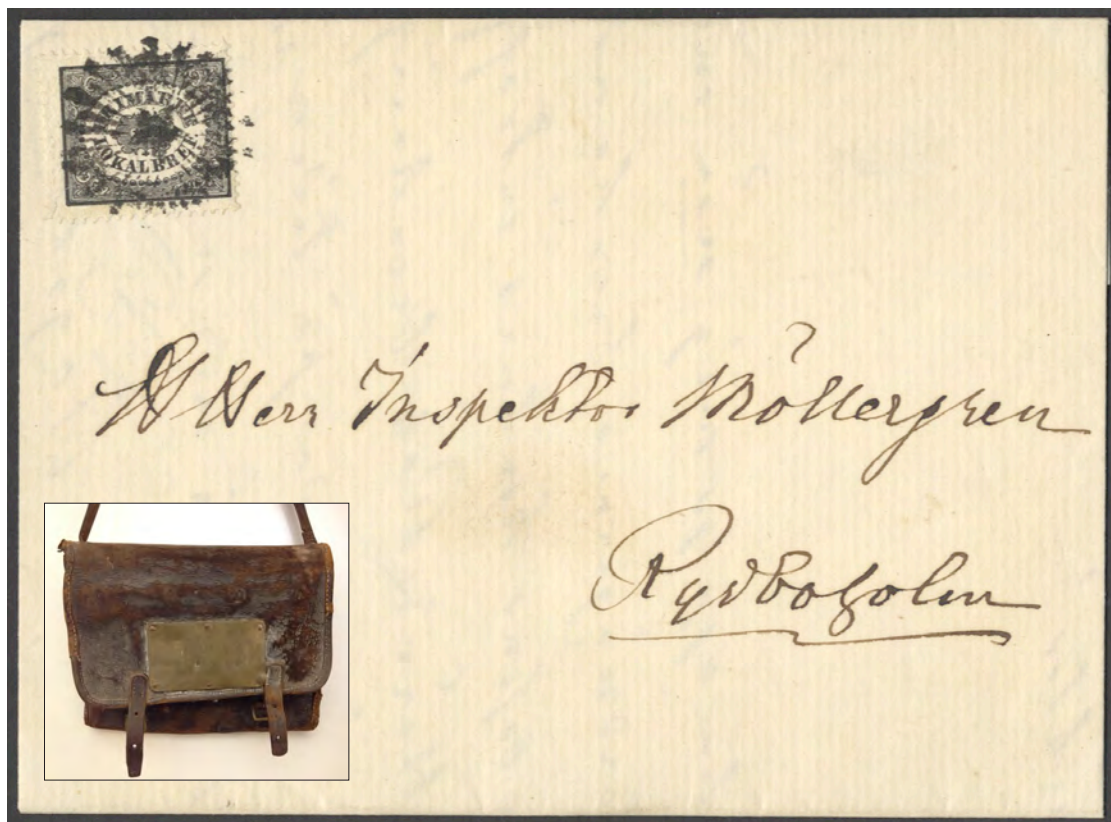 FRIMÄRKE
LOKALBREF.
H Herr Inspektor Möllergren
Rydboholm